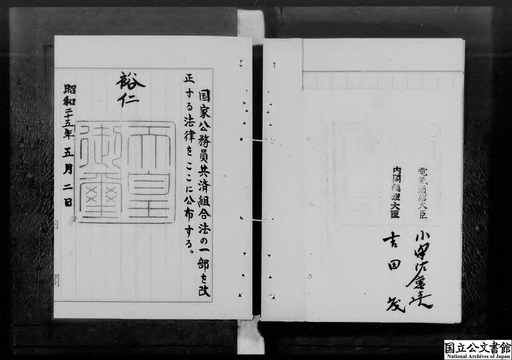 電気通信大臣 小澤佐重喜
内閣総理大臣 吉田茂
国家公務員共済組合法の一部を改
正する法律をここに公布する。
裕仁
天皇
御璽
昭和二十五年五月二日
国立公文書館
National Archives of Japan